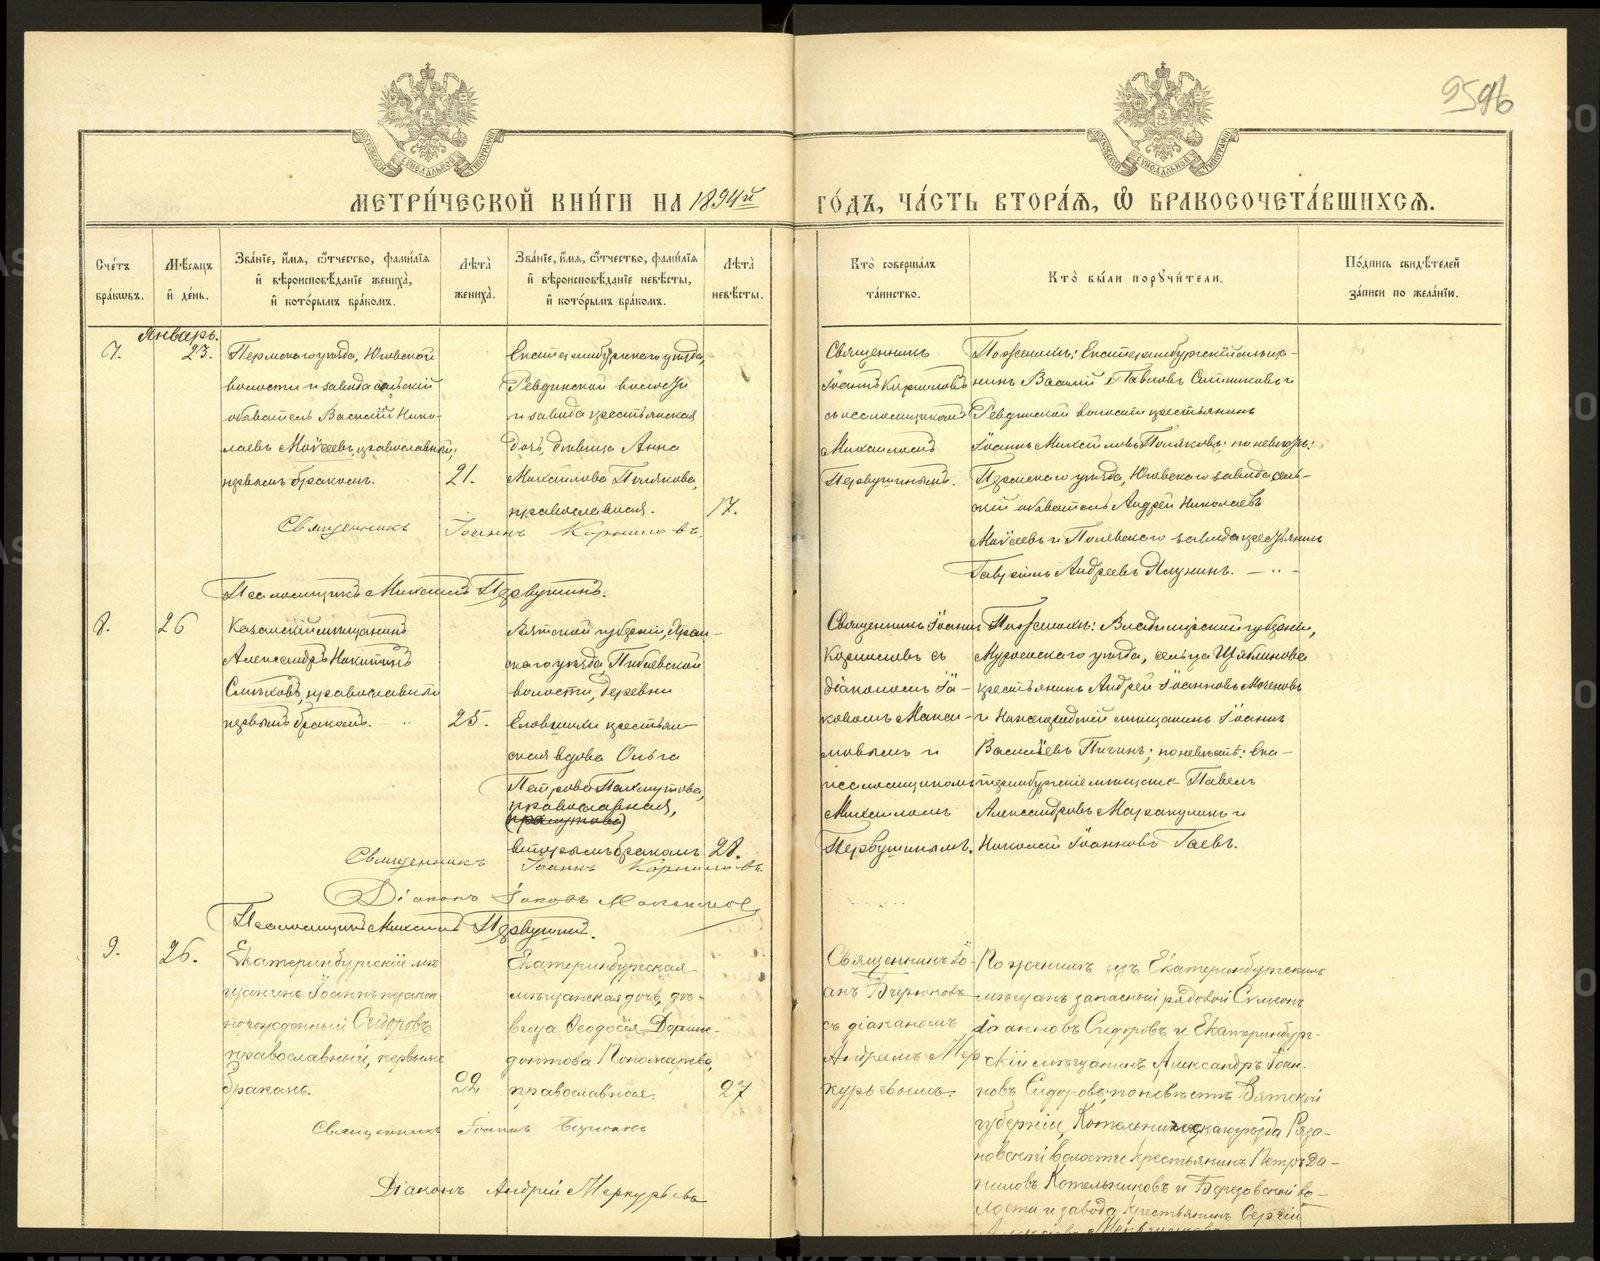 2596
МОСКОВСКОЙ СѴНОДАЛЬНОЙ ТИПОГРАФІИ
МОСКОВСКОЙ СѴНОДАЛЬНОЙ ТИПОГРАФІИ
МЕТРИ́ЧЕСКОЙ КНИ́ГИ НА 1894й ГО́ДЪ, ЧА́СТЬ ВТОРА́Ѧ, Ѽ БРАКОСОЧЕТА́ВШИХСѦ.
Сче́тъ бра́кѡвъ.
Мѣ́сѧцъ и҆ де́нь.
Зва́нїе, и҆́мѧ, ѻ҆́тчество, фами́лїѧ
и҆ вѣроисповѣ́данїе жениха̀,
и҆ кото́рымъ бра́комъ.
Лѣта̀ жениха̀.
Зва́нїе, и҆́мѧ, ѻ҆́тчество, фами́лїѧ
и҆ вѣроисповѣ́данїе невѣ́сты,
и҆ кото́рымъ бра́комъ.
Лѣта̀ невѣ́сты.
Кто̀ соверша́лъ та́инство.
Кто̀ бы́ли порꙋчи́тели.
По́дпись свидѣ́телей за́писи по жела́нїю.
Январь.
7.
23.
Пермскаго уѣзда, Юговской
волости и завода сельскій
обыватель Василій Нико-
лаевъ Моѵсеевъ, православный,
первымъ бракомъ.
21.
Екатеринбургскаго уѣзда,
Ревдинской волости
и завода крестьянская
дочь, дѣвица Анна
Михайлова Полякова,
православная.
17.
Священникъ
Іоаннъ Корниловъ
съ псаломщикомъ
Михаиломъ
Первушинымъ.
По женихѣ: Екатеринбургскій мѣща-
нинъ Василій Павловъ Ситниковъ и
Ревдинской волости крестьянинъ
Іоаннъ Михайловъ Поляковъ; по невѣстѣ:
Пермскаго уѣзда, Юговскаго завода сель-
скій обыватель Андрей Николаевъ
Моѵсеевъ и Полевскаго завода крестьянинъ
Гавріилъ Андреевъ Ялунинъ.
Священникъ Іоаннъ Корниловъ.
Псаломщикъ Михаилъ Первушинъ.
8.
26
Казанскій мѣщанинъ
Александръ Никитинъ
Смыковъ, православный
первымъ бракомъ.
25.
Вятской губерніи, Яран-
скаго уѣзда, Пибаевской
волости, деревни
крестьян-
ская вдова Ольга
Петрова Пахмутова,
православная,
вторымъ бракомъ
28.
Священникъ Іоаннъ
Корниловъ съ
діакономъ Іа-
ковомъ Макси-
мовымъ и
псаломщикомъ
Михаиломъ
Первушинымъ.
По женихѣ: Владимірской губерніи,
Муромскаго уѣзда, сельца
крестьянинъ Андрей Іоанновъ Моченовъ
и мѣщанинъ Іоаннъ
Васильевъ Пичинъ; по невѣстѣ: Ека-
теринбургскіе мѣщане Павелъ
Александровъ Маракулинъ и
Николай Іоанновъ Гаевъ.
Священникъ Іоаннъ Корниловъ.
Діаконъ Іаковъ Максимовъ
Псаломщикъ Михаилъ Первушинъ.
9.
26.
Екатеринбургскій мѣ-
щанинъ Іоаннъ незакон-
норожденный Сидоровъ
православный, первымъ
бракомъ.
22
Екатеринбургская
мѣщанская дочь, дѣ-
вица Ѳеодосія Дорми-
донтова Пономарева,
православная.
27
Священникъ Іо-
аннъ Бирюковъ
съ діакономъ
Андреемъ Мер-
курьевымъ.
По женихѣ изъ Екатеринбургскихъ
мѣщанъ запасный рядовой Сѵмеонъ
Іоанновъ Сидоровъ и Екатеринбург-
скій мѣщанинъ Александръ Іоан-
новъ Сидоровъ; по невѣстѣ Вятской
губерніи, Котельническаго уѣзда Ряза-
новской волости крестьянинъ Петръ Да-
ниловъ Котельниковъ и Березовской во-
лости и завода крестьянинъ Сергій
Священникъ Іоаннъ Бирюковъ
Діаконъ Андрей Меркурьевъ